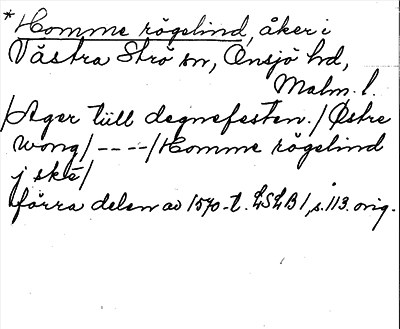 *Homme rögelind, åker i
Västra Strö sn, Onsjö hd,
Malm. l.
/Ager tiill degnefesten./Østre
wong/----/Homme rögelind
j skė/
förra delen av 1570-t. LSLB 1, s. 113. orig.